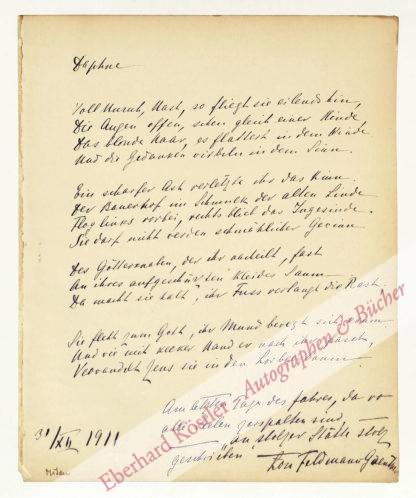 Daphne
Voll Unruh, Hast, so fliegt sie eilends hin,
Die Augen offen, scheu gleich einer Hinde,
Das blonde Haar, es flattert in dem Winde
Und die Gedanken wirbeln in dem Sinn.
Ein scharfer Ast verletzte ihr das Kinn.
Der Bauernhof im Schmucke der alten Linde
Flog links vorbei, rechts blieb das Ingesinde.
Sie darf nicht werden schmählicher Gewinn
Des Göttersohnes, der ihr nacheilt, fast
An ihres aufgeschürzten Kleides Saum
Da macht sie halt, ihr Fuss verlangt die Rast
Sie fleht zum Gott, ihr Mund bewegt sich kaum
Und wie mit kecker Hand er nach ihr
Verwandelt Zeus sie in den Lorbeerbaum.
Am letzten Tage des Jahres, da vor
zerspalten sind,
"an stolzer Stätte stolz
geschrieben
31/XII 1911
Eberhard Köstler - Autographen & Bücher